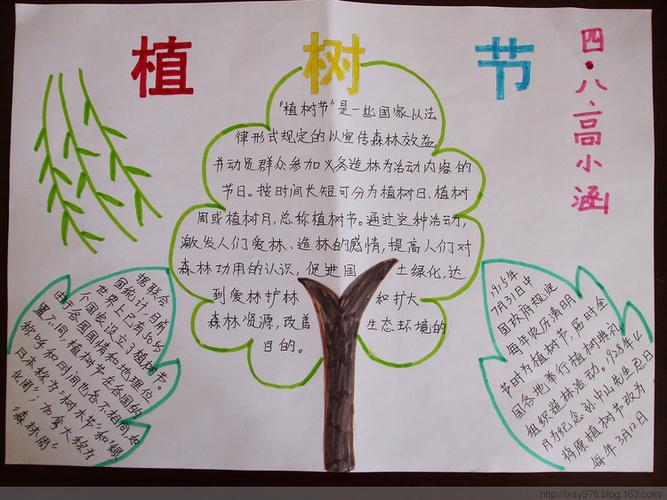 植 树 节
四·八、高小涵
"植树节"是一些国家以法
律形式规定的以宣传森林效益,
并动员群众参加义务造林为活动内容的
节日。按时间长短可分为植树日、植树
周或植树月,总称植树节。通过这种活动,
激发人们爱林、造林的感情,提高人们对
森林功用的认识,促进国土绿化,达
到爱林护林和扩大
森林资源,改善生态环境的
目的。
据联合
国统计,目前
世界上已有50多
个国家设立了植树节。
由于各国国情和地理位
置不同,植树节在各国的
称呼和时间也各不相同,如
日本称为"树木节"和"绿
化周";加拿大称为
"森林周"
1915年
7月31日中
国政府规定
每年农历清明
节时为植树节,届时全
国各地举行植树典礼,
组织造林活动。1928年以
月为纪念孙中山先生忌日
将原植树节改为
每年3月12日
http://lxsy978.blog.163.com/